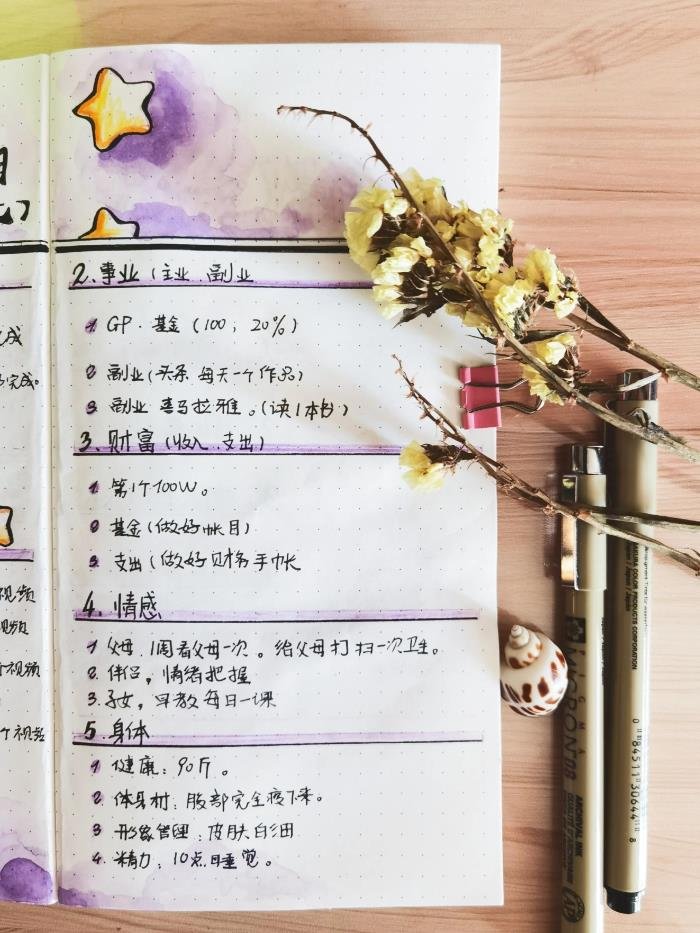 成
完成。
视频
视频
视频
个视频
2.事业(主业.副业
1 GP.基金(100;20%)
2 副业(头条.每天一个作品)
3 副业 喜马拉雅。(读1本书)
3.财富(收入.支出)
1. 第1个100W。
2 基金(做好帐目)
3. 支出(做好财务手帐
4.情感
1 父母.1周看父母一次。给父母打扫一次卫生。
2.伴侣,情绪把握
3.子女,早教每日一课
5.身体
1 健康:90斤。
2 体身材:腹部完全瘦下来。
3 形象管理:皮肤白细
4.精力:10点睡觉。
SAKURA COLOR PRODUCTS CORPORATION
Japan
PIGMA
MICRON 08
ARCHIVAL INK
0 84511 30644 8